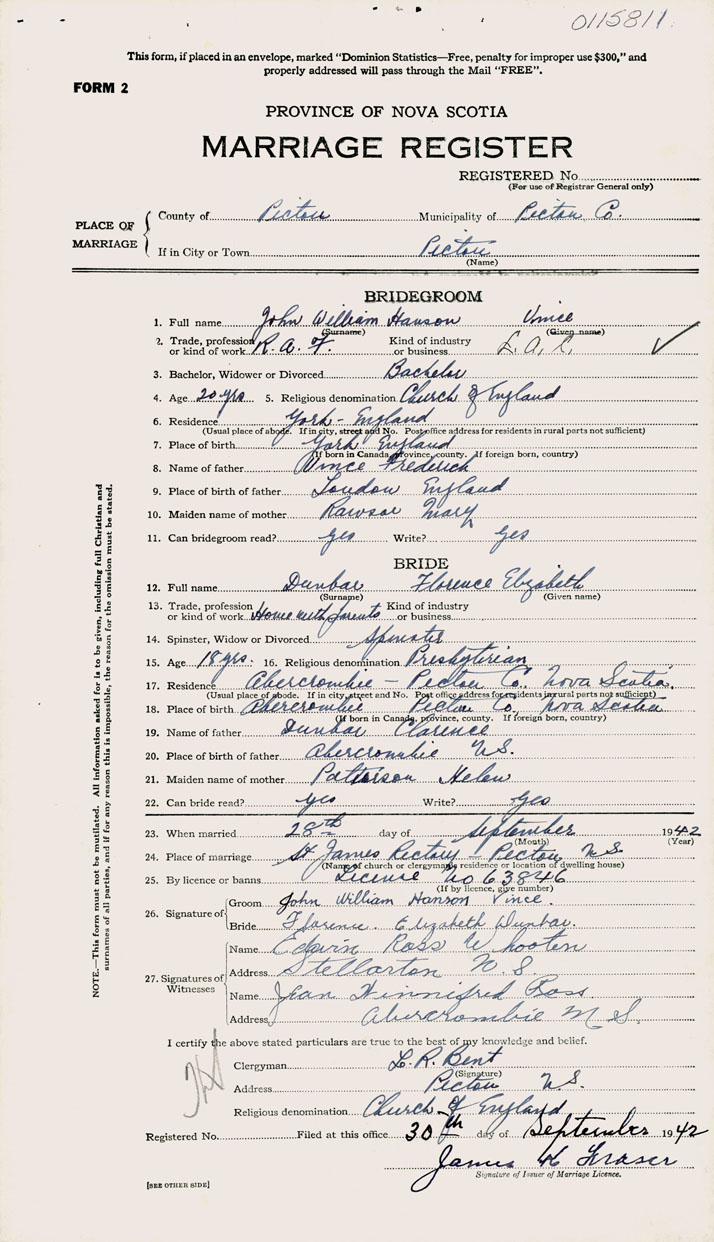 0115811
This form, if placed in an envelope, marked "Dominion Statistics—Free, penalty for improper use $300," and
properly addressed will pass through the Mail "FREE".
FORM 2
PROVINCE OF NOVA SCOTIA
MARRIAGE REGISTER
REGISTERED No.
(For use of Registrar General only)
PLACE OF MARRIAGE
County of Pictou Municipality of Pictou Co.
If in City or Town Pictou
(Name)
BRIDEGROOM
1. Full name John William Hanson Vince
(Surname) (Given name)
2. Trade, profession or kind of work R.A.F. Kind of industry or business L.A.C.
3. Bachelor, Widower or Divorced Bachelor
4. Age 20 yrs 5. Religious denomination Church of England
6. Residence York - England
(Usual place of abode. If in city, street and No. Post office address for residents in rural parts not sufficient)
7. Place of birth York England
(If born in Canada, province, county. If foreign born, country)
8. Name of father Vince Frederick
9. Place of birth of father London England
10. Maiden name of mother Mary
11. Can bridegroom read? yes Write? yes
BRIDE
12. Full name Dunbar Florence Elizabeth
(Surname) (Given name)
13. Trade, profession or kind of work Home with parents Kind of industry or business
14. Spinster, Widow or Divorced Spinster
15. Age 18 yrs. 16. Religious denomination Presbyterian
17. Residence Abercrombie - Pictou Co., Nova Scotia.
(Usual place of abode. If in city, street and No. Post office address for residents in rural parts not sufficient)
18. Place of birth Abercrombie Pictou Co. Nova Scotia
(If born in Canada, province, county. If foreign born, country)
19. Name of father Dunbar Clarence
20. Place of birth of father Abercrombie N.S.
21. Maiden name of mother Patterson Helen
22. Can bride read? yes Write? yes
23. When married 28th day of September 1942
(Month) (Year)
24. Place of marriage St James Rectory - Pictou N.S
(Name of church or clergyman's residence or location of dwelling house)
25. By licence or banns License No 63846
(If by licence, give number)
26. Signature of
Groom John William Hanson Vince.
Bride Florence Elizabeth Dunbar.
27. Signatures of Witnesses
Name Edwin Ross Whooten
Address Stellarton N.S.
Name Jean Winnifred Ross
Address Abercrombie N.S.
I certify the above stated particulars are true to the best of my knowledge and belief.
Clergyman L. R. Bent
(Signature)
Address Pictou N.S.
Religious denomination Church of England
Registered No. Filed at this office 30th day of September 1942
James H Fraser
Signature of Issuer of Marriage Licence.
[SEE OTHER SIDE]
NOTE.—This form must not be mutilated. All information asked for is to be given, including full Christian and
surnames of all parties, and if for any reason this is impossible, the reason for the omission must be stated.